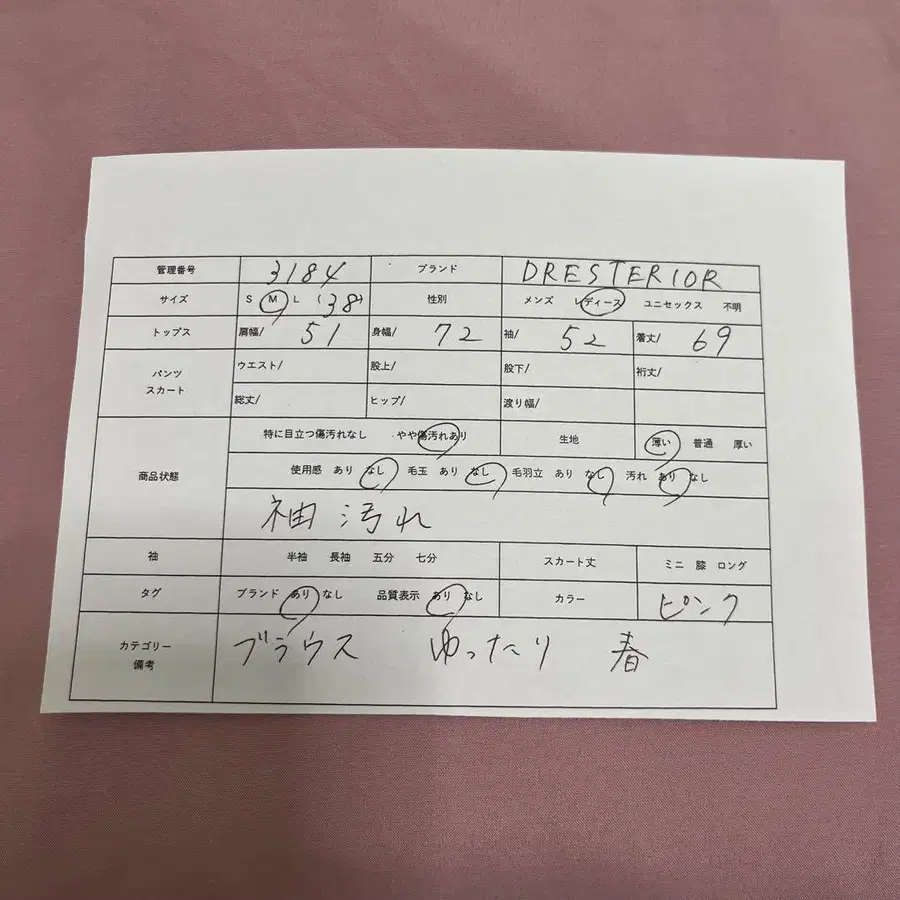 管理番号 3184 ブランド DRESTERIOR
サイズ S M L (38) 性別 メンズ レディース ユニセックス 不明
トップス 肩幅/ 51 身幅/ 72 袖/ 52 着丈/ 69
パンツ スカート ウエスト/ 股上/ 股下/ 裄丈/
総丈/ ヒップ/ 渡り幅/
特に目立つ傷汚れなし やや傷汚れあり 生地 薄い 普通 厚い
商品状態 使用感 あり なし 毛玉 あり なし 毛羽立 あり なし 汚れ あり なし
袖汚れ
袖 半袖 長袖 五分 七分 スカート丈 ミニ 膝 ロング
タグ ブランド あり なし 品質表示 あり なし カラー ピンク
カテゴリー 備考 ブラウス ゆったり 春